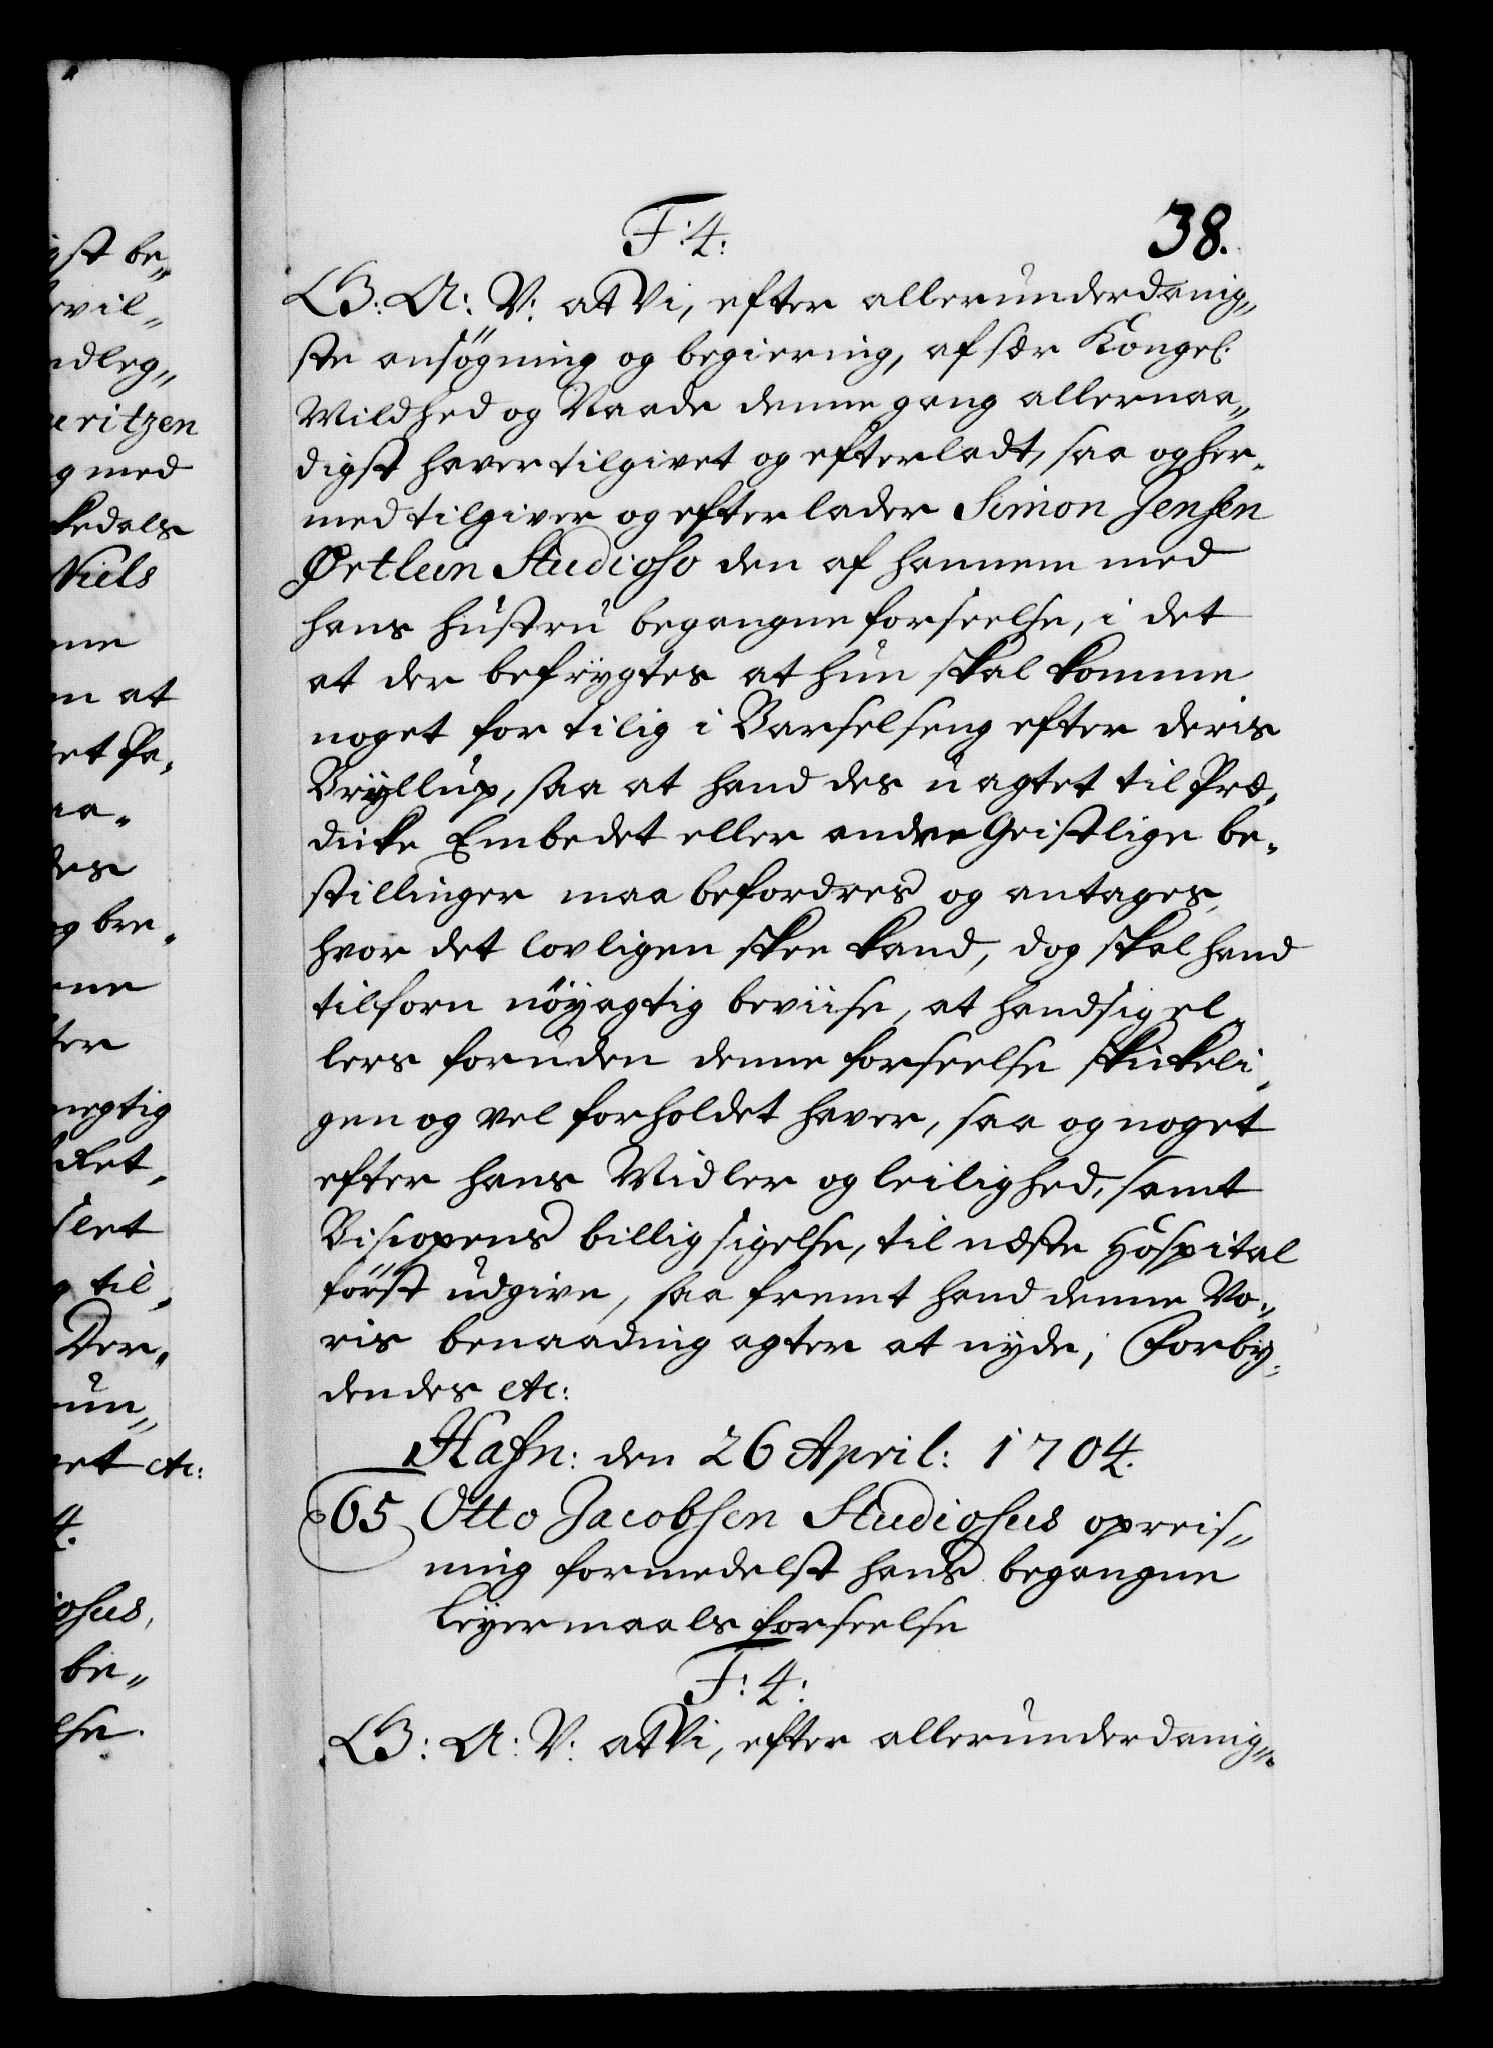 gst be„
ervil„
ndleg„
eritzen
g med
kedals
Niels
ne
m at
et Pa„
aa„
des
og bre„
ne
ter
negtig
Ret„
slet
g til„
Der„
un„
et etc:
4.
iosus,
be„
lse.
F: 4: 38.
G: A: V: at Vi, efter allerunderdanig„
ste ansögning og begiering, af sær Kongel.
Mildhed og Naade denne gang allernaa„
digst haver tilgivet og efterladt, saa og her„
med tilgiver og efterlader Simon Jensen
Ørtlein Studioso den af hannem med
hans hustru begangne forseelse, i det
at der befrygtes at hun skal komme
noget for tilig i Barselseng efter deris
Bryllup, saa at hand des uagtet til Præ„
dicke Embedet eller andre Geistlige be„
stillinger maa befordres og antages,
hvor det lovligen skee kand, dog skal hand
tilforn nöyagtig beviise, at hand sig el„
lers foruden denne forseelse skickeli„
gen og vel forholdet haver, saa og noget
efter hans Midler og leilighed, samt
Biscopens billig sigelse, til næste Hospital
först udgive, saa fremt hand denne Vo„
ris benaading agter at nyde; Forby„
dendes etc:
Hafn: den 26 April: 1704.
65 Otto Jacobsen Studiosus opreis„
ning formedelst hans begangne
Leyermaals forseelse
F: 4:
G: A: V: at Vi, efter allerunderdanig„